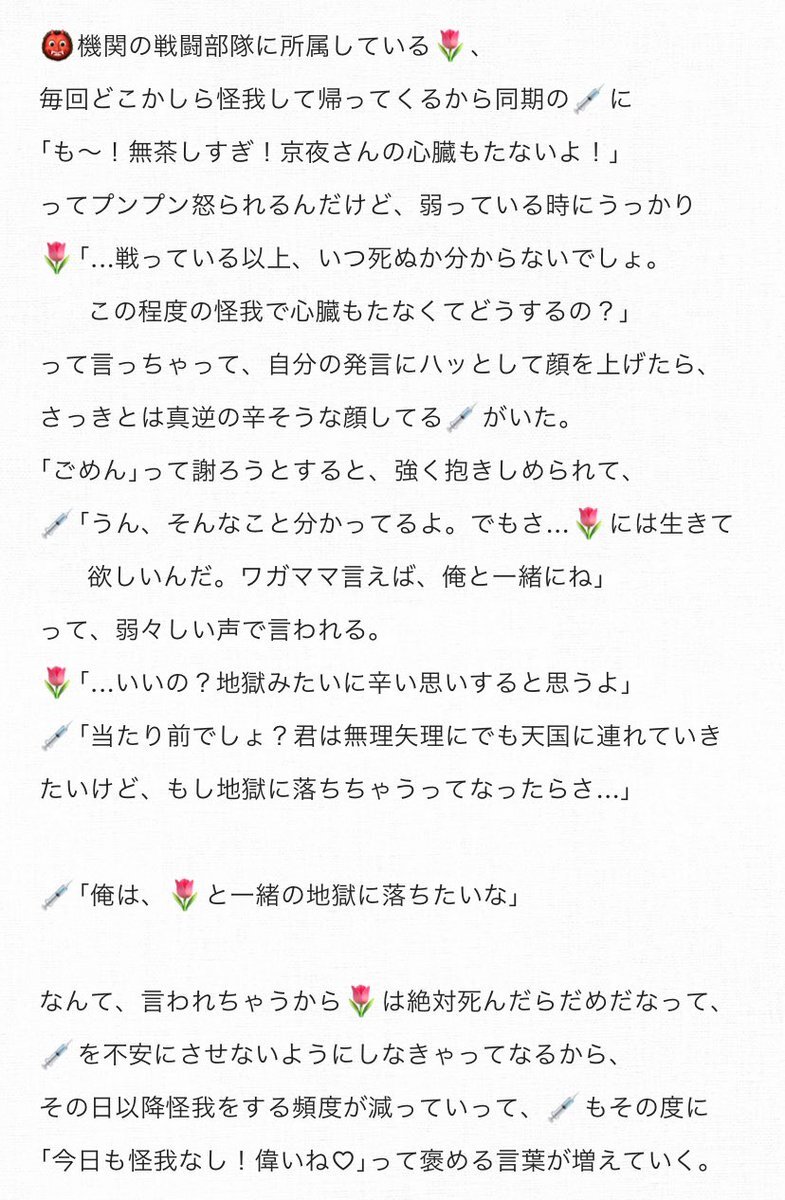 👹機関の戦闘部隊に所属している🌷、
毎回どこかしら怪我して帰ってくるから同期の💉に
「も〜！無茶しすぎ！京夜さんの心臓もたないよ！」
ってプンプン怒られるんだけど、弱っている時にうっかり
🌷「…戦っている以上、いつ死ぬか分からないでしょ。
この程度の怪我で心臓もたなくてどうするの？」
って言っちゃって、自分の発言にハッとして顔を上げたら、
さっきとは真逆の辛そうな顔してる💉がいた。
「ごめん」って謝ろうとすると、強く抱きしめられて、
💉「うん、そんなこと分かってるよ。でもさ…🌷には生きて
欲しいんだ。ワガママ言えば、俺と一緒にね」
って、弱々しい声で言われる。
🌷「…いいの？地獄みたいに辛い思いすると思うよ」
💉「当たり前でしょ？君は無理矢理にでも天国に連れていき
たいけど、もし地獄に落ちちゃうってなったらさ…」
💉「俺は、🌷と一緒の地獄に落ちたいな」
なんて、言われちゃうから🌷は絶対死んだらだめだなって、
💉を不安にさせないようにしなきゃってなるから、
その日以降怪我をする頻度が減っていって、💉もその度に
「今日も怪我なし！偉いね♡」って褒める言葉が増えていく。